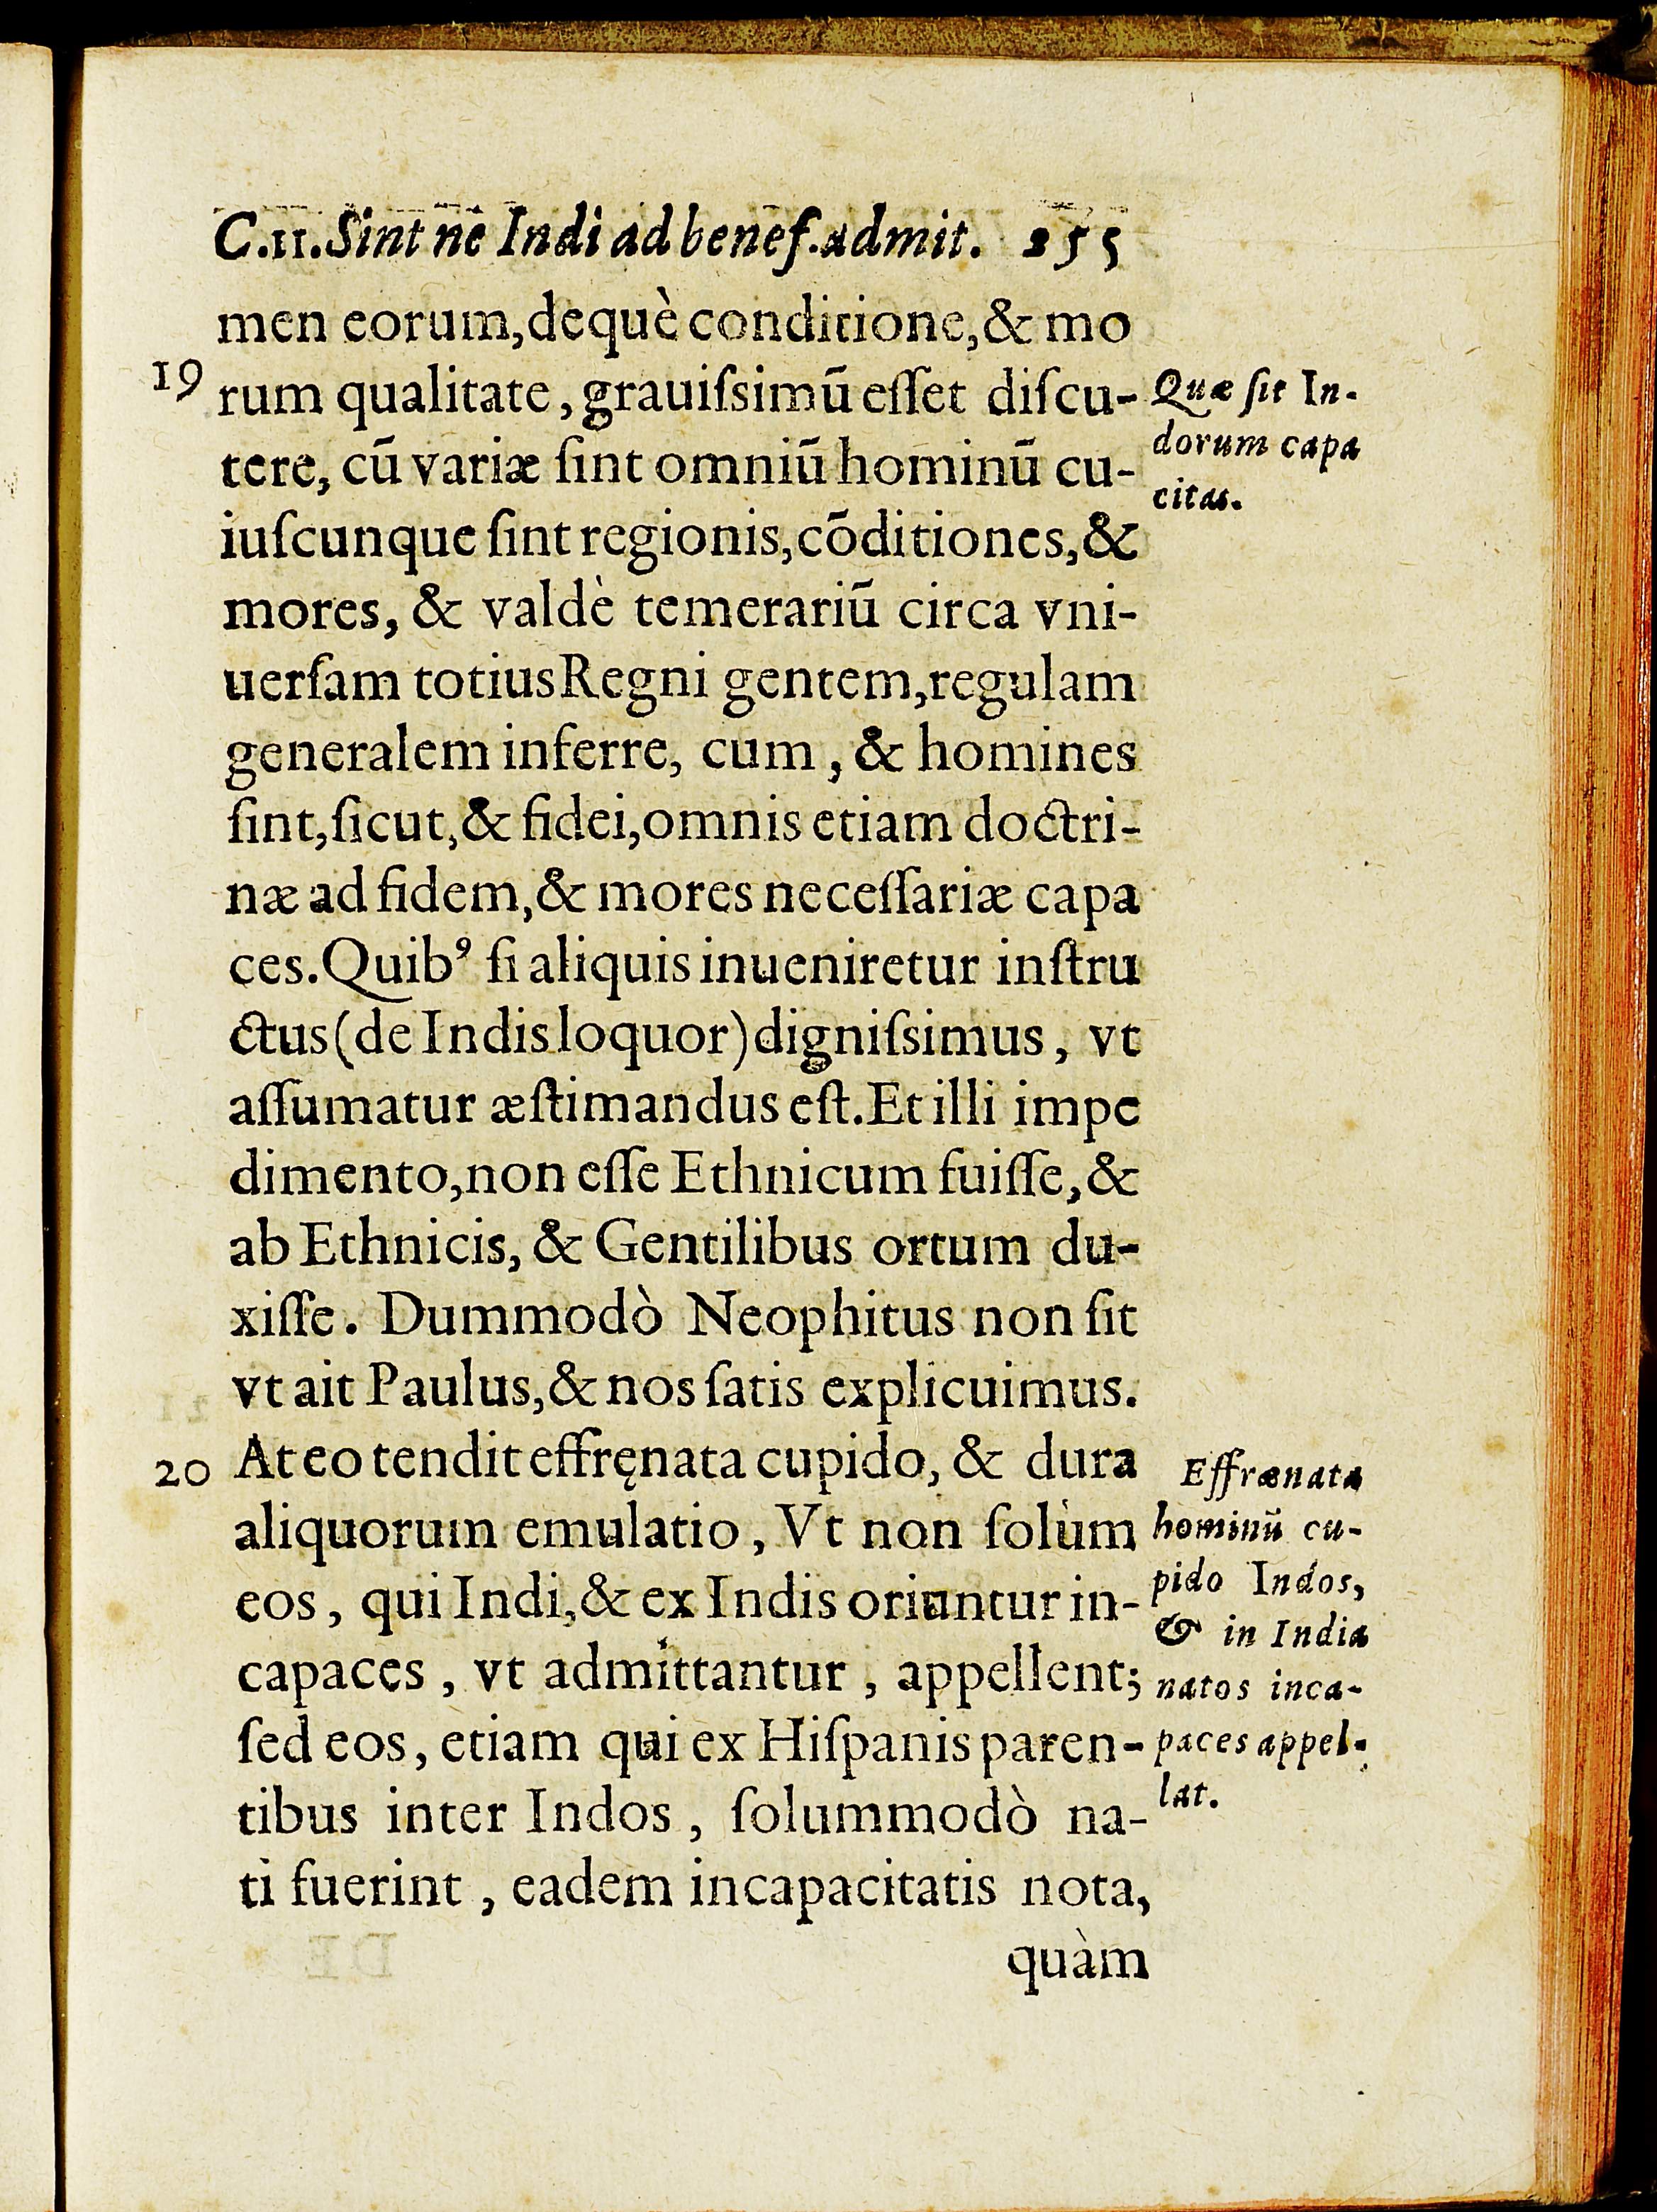 C.11.Sint ne Indi ad benef.admit. 255
men eorum,dequè conditione,& mo
19 rum qualitate, grauiſsimū eſſet diſcu-
tere, cū variæ ſint omniū hominū cu-
iuſcunque ſint regionis,cōditiones,&
mores, & valdè temerariū circa vni-
uerſam totius Regni gentem,regulam
generalem inferre, cum, & homines
ſint,ſicut,& fidei,omnis etiam doctri-
næ ad fidem,& mores neceſſariæ capa
ces.Quibꝰ ſi aliquis inueniretur inſtru
ctus(de Indis loquor)digniſsimus, vt
aſſumatur æſtimandus eſt.Et illi impe
dimento,non eſſe Ethnicum fuiſſe,&
ab Ethnicis, & Gentilibus ortum du-
xiſſe. Dummodò Neophitus non ſit
vt ait Paulus,& nos ſatis explicuimus.
20 At eo tendit effręnata cupido, & dura
aliquorum emulatio, Vt non ſolùm
eos, qui Indi,& ex Indis oriuntur in-
capaces, vt admittantur, appellent;
ſed eos, etiam qui ex Hiſpanis paren-
tibus inter Indos, ſolummodò na-
ti fuerint, eadem incapacitatis nota,
quàm
Quæ ſit In-
dorum capa
citas.
Effrænata
hominū cu-
pido Indos,
& in India
natos inca-
paces appel-
lat.